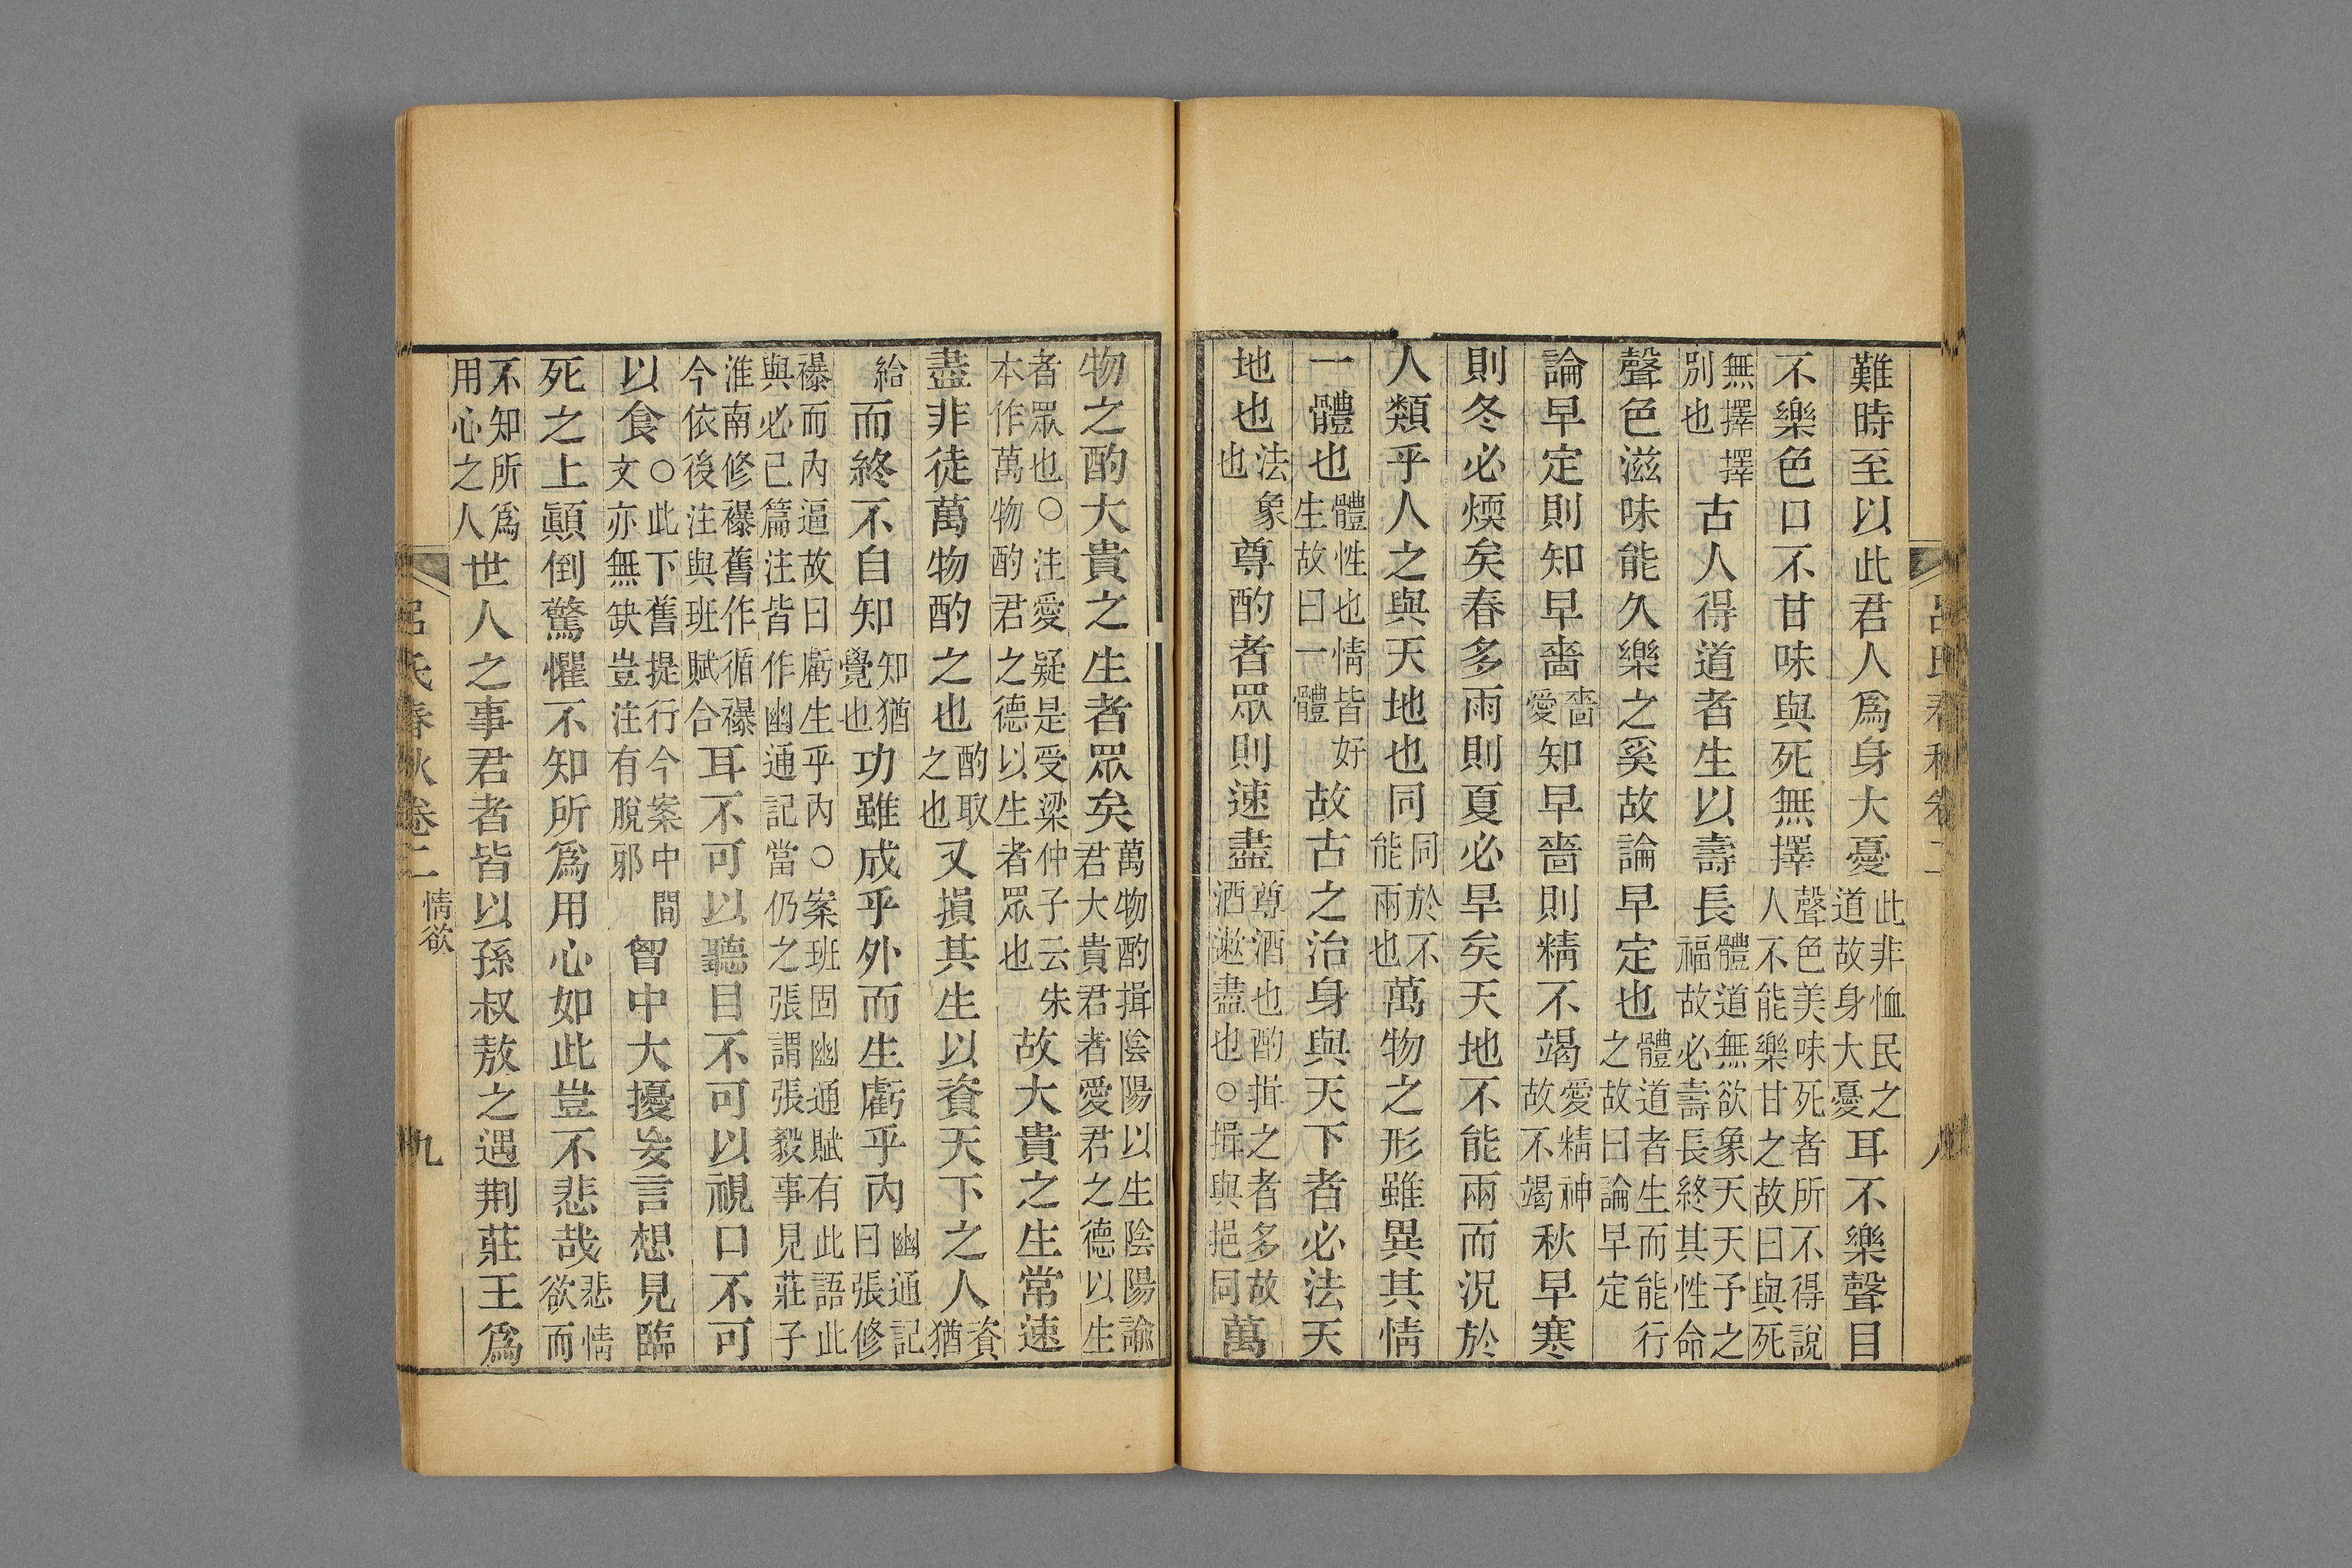 呂氏春秋卷二 八
難時至以此君人爲身大憂此非恤民之道故身大憂耳不樂聲目
不樂色口不甘味與死無擇聲色美味死者所不得說人不能樂甘之故曰與死
無擇擇別也古人得道者生以壽長體道無欲象天天予之福故必壽長終其性命
聲色滋味能久樂之奚故論早定也體道者生而能行之故曰論早定
論早定則知早嗇嗇愛知早嗇則精不竭愛精神故不竭秋早寒
則冬必煗矣春多雨則夏必旱矣天地不能兩而況於
人類乎人之與天地也同同於不能兩也萬物之形雖異其情
一體也體性也情皆好生故曰一體故古之治身與天下者必法天
地也法象也尊酌者眾則速盡尊酒也酌揖之者多故酒遬盡也○揖與挹同萬
物之酌大貴之生者眾矣萬物酌揖陰陽以生陰陽諭君大貴君者愛君之德以生
者眾也○注愛疑是受梁仲子云朱本作萬物酌君之德以生者眾也故大貴之生常速
盡非徒萬物酌之也酌取之也又損其生以資天下之人資猶
給而終不自知知猶覺也功雖成乎外而生虧乎內幽通記曰張修
襮而內逼故曰虧生乎內○案班固幽通賦有此語此與必己篇注皆作幽通記當仍之張謂張毅事見莊子
淮南修襮舊作循襮今依後注與班賦合耳不可以聽目不可以視口不可
以食○此下舊提行今案中間文亦無缺豈注有脫邪胷中大擾妄言想見臨
死之上顚倒驚懼不知所爲用心如此豈不悲哉悲情欲而
不知所爲用心之人世人之事君者皆以孫叔敖之遇荆莊王爲
呂氏春秋卷二 情欲 九